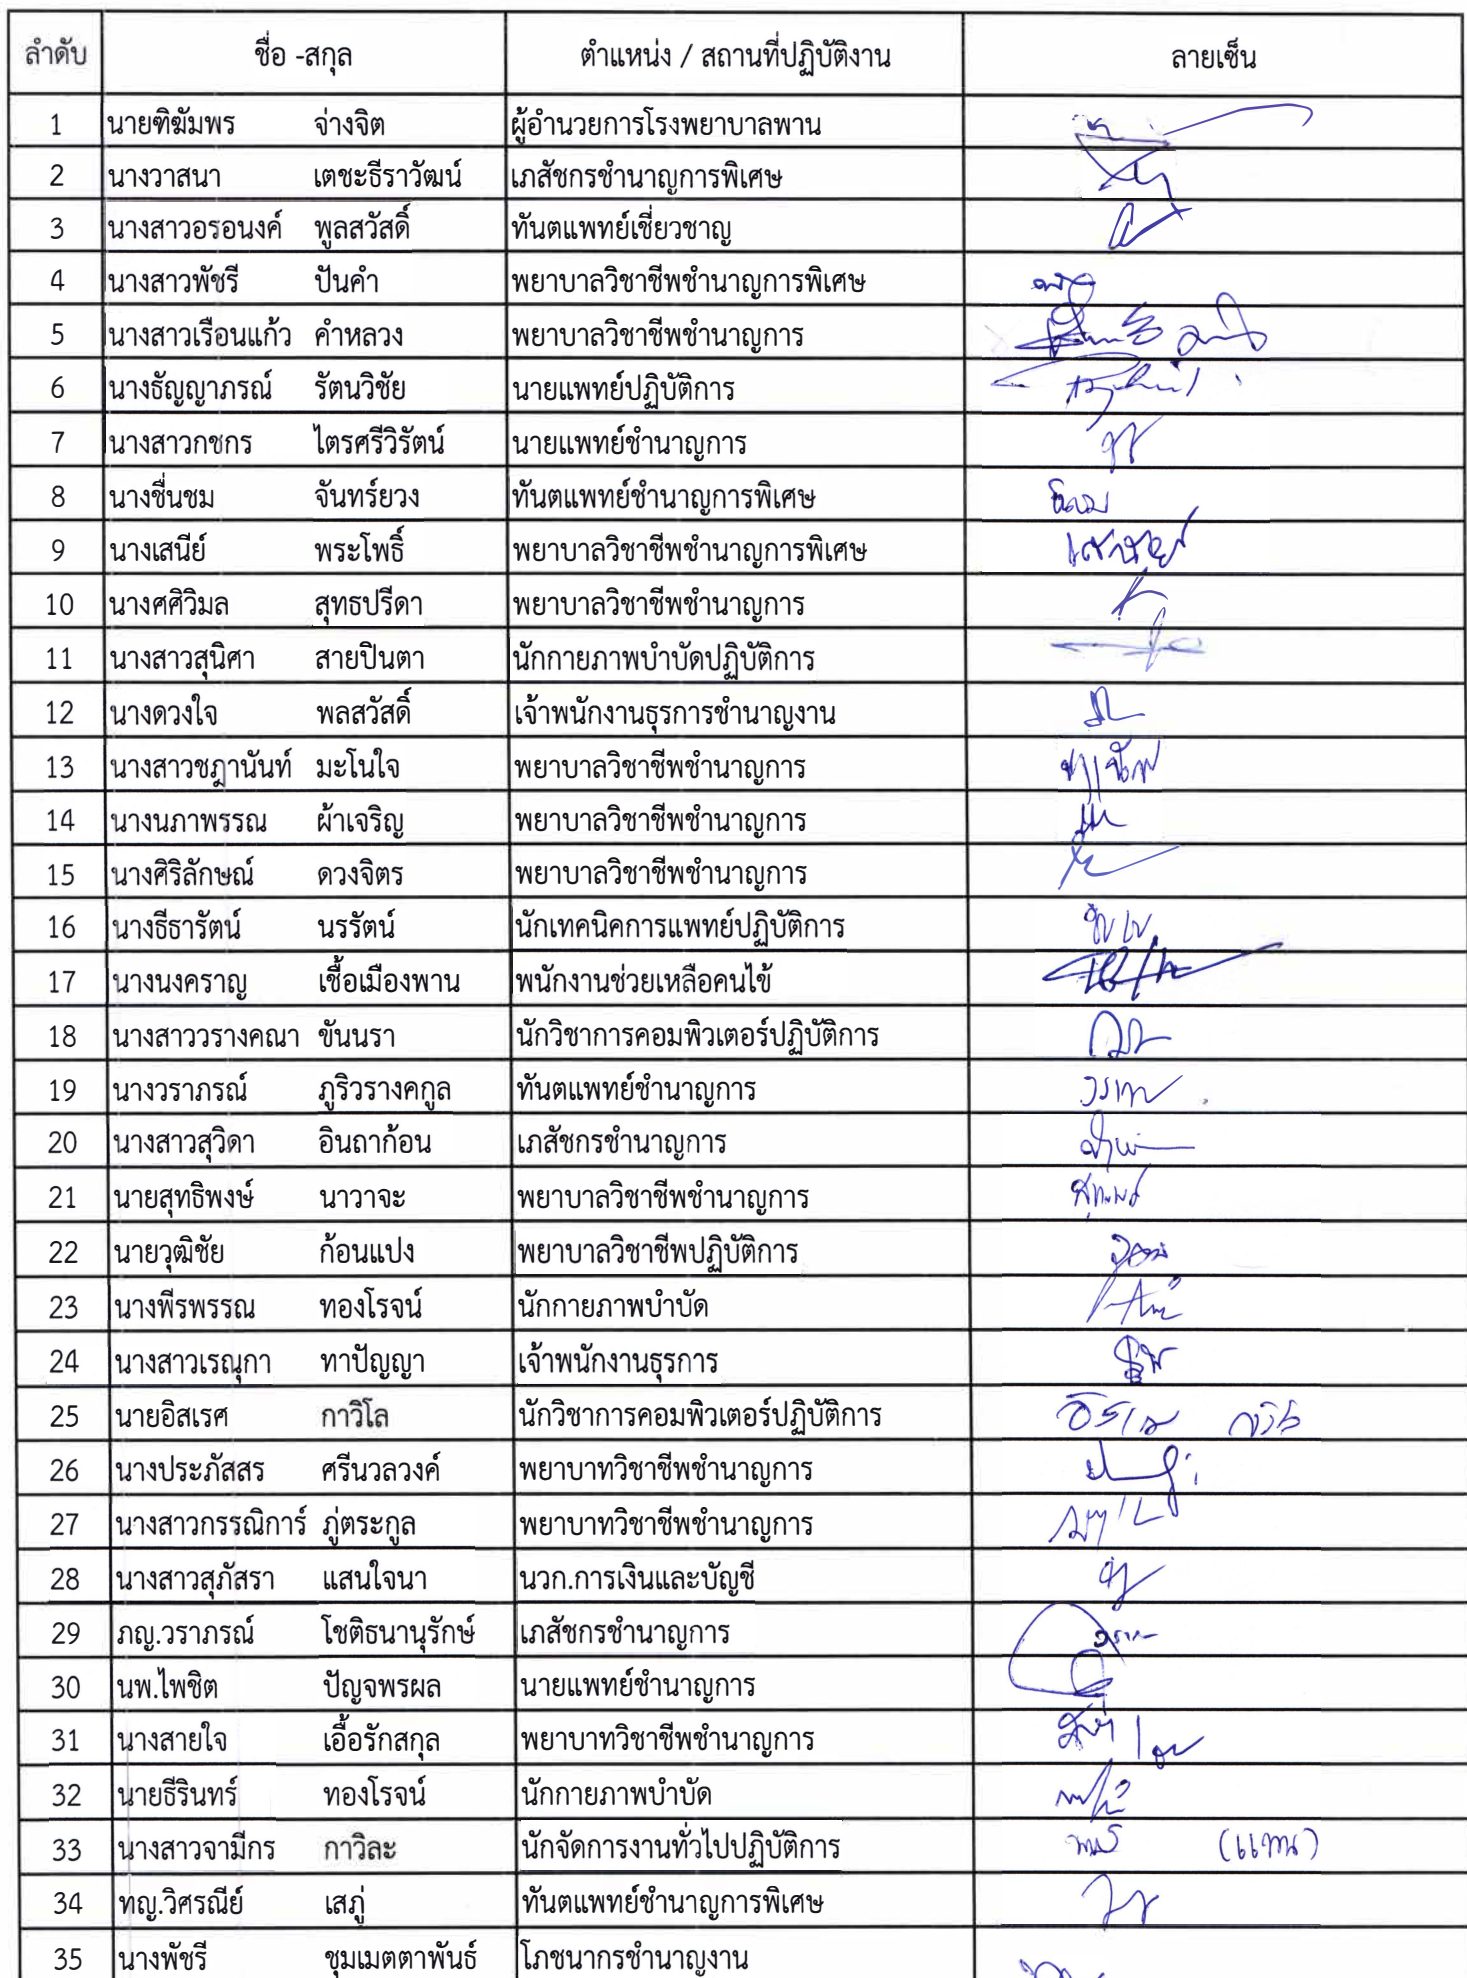 ลำดับ ชื่อ -สกุล ตำแหน่ง / สถานที่ปฏิบัติงาน ลายเซ็น
1 นายฑิฆัมพร จ่างจิต ผู้อำนวยการโรงพยาบาลพาน
2 นางวาสนา เตชะธีราวัฒน์ เภสัชกรชำนาญการพิเศษ
3 นางสาวอรอนงค์ พูลสวัสดิ์ ทันตแพทย์เชี่ยวชาญ
4 นางสาวพัชรี ปันคำ พยาบาลวิชาชีพชำนาญการพิเศษ
5 นางสาวเรือนแก้ว คำหลวง พยาบาลวิชาชีพชำนาญการ
6 นางธัญญาภรณ์ รัตนวิชัย นายแพทย์ปฏิบัติการ
7 นางสาวกชกร ไตรศรีวิรัตน์ นายแพทย์ชำนาญการ
8 นางชื่นชม จันทร์ยวง ทันตแพทย์ชำนาญการพิเศษ
9 นางเสนีย์ พระโพธิ์ พยาบาลวิชาชีพชำนาญการพิเศษ
10 นางศศิวิมล สุทธปรีดา พยาบาลวิชาชีพชำนาญการ
11 นางสาวสุนิศา สายปินตา นักกายภาพบำบัดปฏิบัติการ
12 นางดวงใจ พลสวัสดิ์ เจ้าพนักงานธุรการชำนาญงาน
13 นางสาวชฎานันท์ มะโนใจ พยาบาลวิชาชีพชำนาญการ
14 นางนภาพรรณ ผ้าเจริญ พยาบาลวิชาชีพชำนาญการ
15 นางศิริลักษณ์ ดวงจิตร พยาบาลวิชาชีพชำนาญการ
16 นางธีธารัตน์ นรรัตน์ นักเทคนิคการแพทย์ปฏิบัติการ
17 นางนงคราญ เชื้อเมืองพาน พนักงานช่วยเหลือคนไข้
18 นางสาววรางคณา ขันนรา นักวิชาการคอมพิวเตอร์ปฏิบัติการ
19 นางวราภรณ์ ภูริวรางคกูล ทันตแพทย์ชำนาญการ
20 นางสาวสุวิดา อินถาก้อน เภสัชกรชำนาญการ
21 นายสุทธิพงษ์ นาวาจะ พยาบาลวิชาชีพชำนาญการ
22 นายวุฒิชัย ก้อนแปง พยาบาลวิชาชีพปฏิบัติการ
23 นางพีรพรรณ ทองโรจน์ นักกายภาพบำบัด
24 นางสาวเรณุกา ทาปัญญา เจ้าพนักงานธุรการ
25 นายอิสเรศ กาวิโล นักวิชาการคอมพิวเตอร์ปฏิบัติการ
26 นางประภัสสร ศรีนวลวงค์ พยาบาทวิชาชีพชำนาญการ
27 นางสาวกรรณิการ์ ภู่ตระกูล พยาบาทวิชาชีพชำนาญการ
28 นางสาวสุภัสรา แสนใจนา นวก.การเงินและบัญชี
29 ภญ.วราภรณ์ โชติธนานุรักษ์ เภสัชกรชำนาญการ
30 นพ.ไพชิต ปัญจพรผล นายแพทย์ชำนาญการ
31 นางสายใจ เอื้อรักสกุล พยาบาทวิชาชีพชำนาญการ
32 นายธีรินทร์ ทองโรจน์ นักกายภาพบำบัด
33 นางสาวจามีกร กาวิละ นักจัดการงานทั่วไปปฏิบัติการ (แทน)
34 ทญ.วิศรณีย์ เสภู่ ทันตแพทย์ชำนาญการพิเศษ
35 นางพัชรี ชุมเมตตาพันธ์ โภชนากรชำนาญงาน